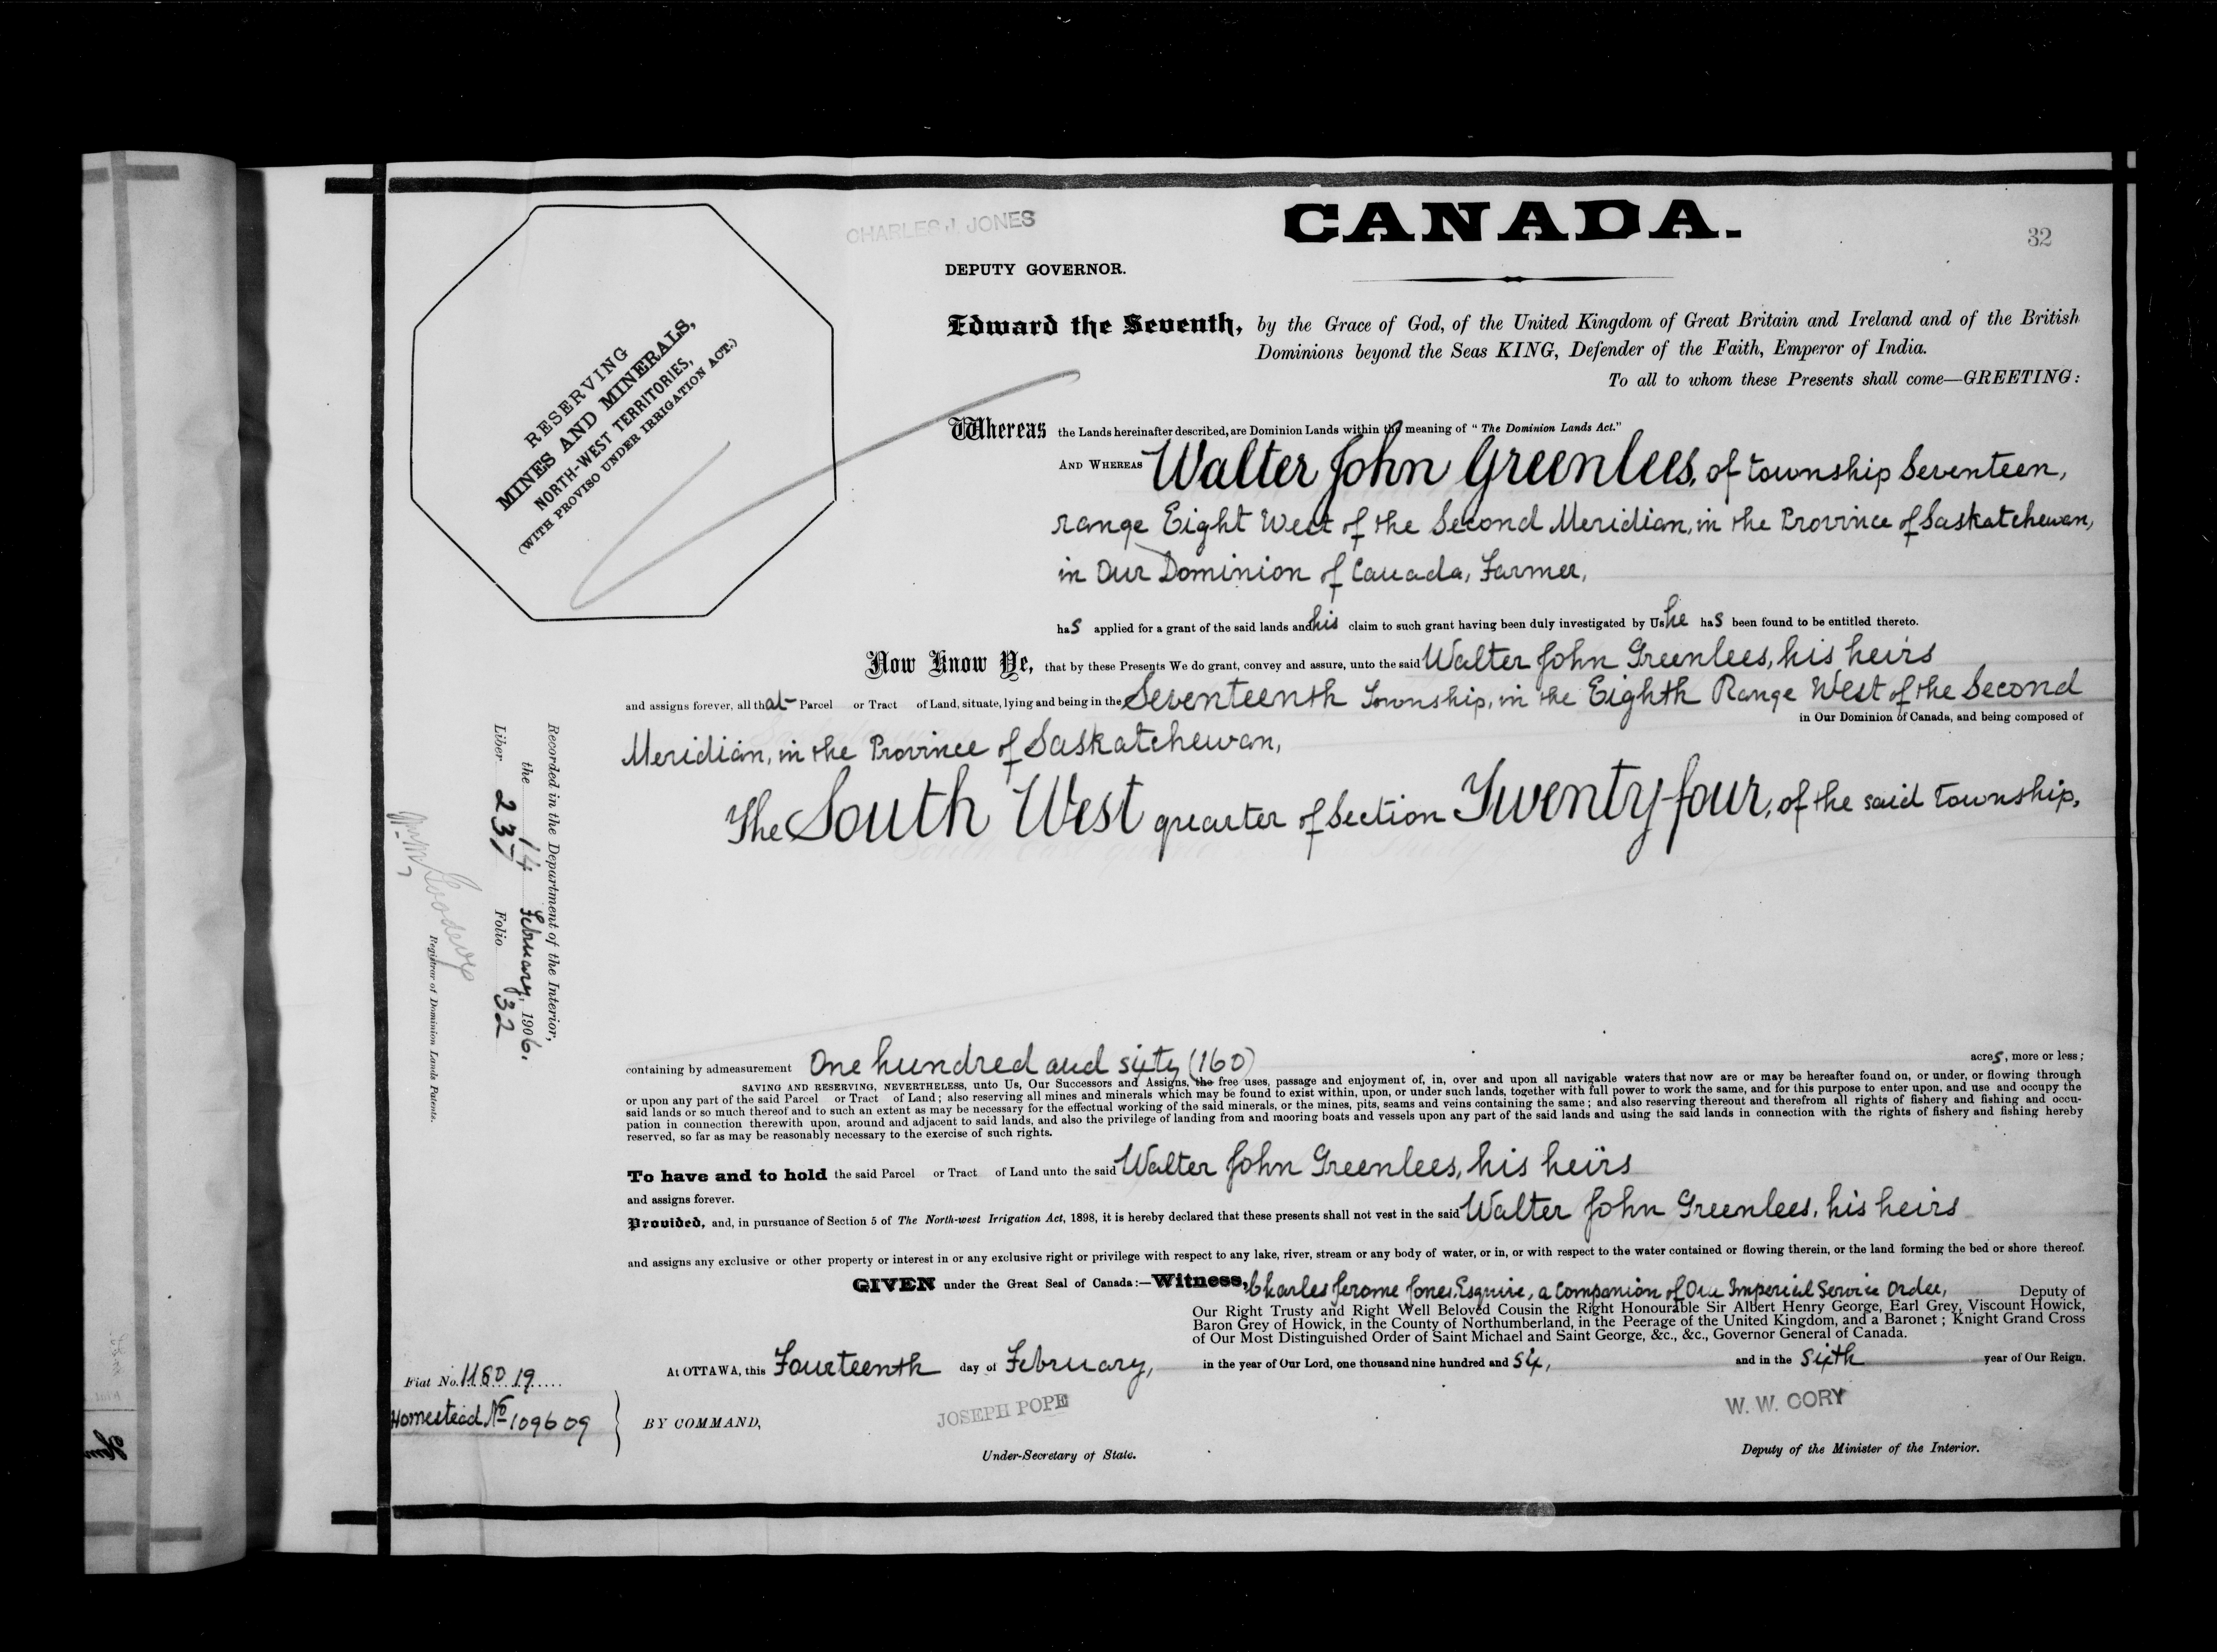 CANADA.
32
CHARLES J. JONES
DEPUTY GOVERNOR.
RESERVING
MINES AND MINERALS,
NORTH-WEST TERRITORIES,
(WITH PROVISO UNDER IRRIGATION ACT.)
Edward the Seventh, by the Grace of God, of the United Kingdom of Great Britain and Ireland and of the British
Dominions beyond the Seas KING, Defender of the Faith, Emperor of India.
To all to whom these Presents shall come—GREETING:
Whereas the Lands hereinafter described, are Dominion Lands within the meaning of "The Dominion Lands Act."
AND WHEREAS Walter John Greenlees, of township Seventeen,
range Eight West of the Second Meridian, in the Province of Saskatchewan,
in Our Dominion of Canada, Farmer,
has applied for a grant of the said lands and his claim to such grant having been duly investigated by Us he has been found to be entitled thereto.
Now Know Ye, that by these Presents We do grant, convey and assure, unto the said Walter John Greenlees, his heirs
and assigns forever, all that Parcel or Tract of Land, situate, lying and being in the Seventeenth Township, in the Eighth Range West of the Second
in Our Dominion of Canada, and being composed of
Meridian, in the Province of Saskatchewan,
The South West quarter of Section Twenty four, of the said township,
Recorded in the Department of the Interior,
the 14 February, 1906,
Liber 237 Folio 32
Registrar of Dominion Lands Patents.
containing by admeasurement One hundred and sixty (160) acres, more or less;
SAVING AND RESERVING, NEVERTHELESS, unto Us, Our Successors and Assigns, the free uses, passage and enjoyment of, in, over and upon all navigable waters that now are or may be hereafter found on, or under, or flowing through
or upon any part of the said Parcel or Tract of Land; also reserving all mines and minerals which may be found to exist within, upon, or under such lands, together with full power to work the same, and for this purpose to enter upon, and use and occupy the
said lands or so much thereof and to such an extent as may be necessary for the effectual working of the said minerals, or the mines, pits, seams and veins containing the same; and also reserving thereout and therefrom all rights of fishery and fishing and occu-
pation in connection therewith upon, around and adjacent to said lands, and also the privilege of landing from and mooring boats and vessels upon any part of the said lands and using the said lands in connection with the rights of fishery and fishing hereby
reserved, so far as may be reasonably necessary to the exercise of such rights.
To have and to hold the said Parcel or Tract of Land unto the said Walter John Greenlees, his heirs
and assigns forever.
Provided, and, in pursuance of Section 5 of The North-west Irrigation Act, 1898, it is hereby declared that these presents shall not vest in the said Walter John Greenlees, his heirs
and assigns any exclusive or other property or interest in or any exclusive right or privilege with respect to any lake, river, stream or any body of water, or in, or with respect to the water contained or flowing therein, or the land forming the bed or shore thereof.
GIVEN under the Great Seal of Canada:—Witness, Charles Jerome Jones, Esquire, a Companion of Our Imperial Service Order, Deputy of
Our Right Trusty and Right Well Beloved Cousin the Right Honourable Sir Albert Henry George, Earl Grey, Viscount Howick,
Baron Grey of Howick, in the County of Northumberland, in the Peerage of the United Kingdom, and a Baronet; Knight Grand Cross
of Our Most Distinguished Order of Saint Michael and Saint George, &c., &c., Governor General of Canada.
At OTTAWA, this Fourteenth day of February, in the year of Our Lord, one thousand nine hundred and Six, and in the Sixth year of Our Reign.
Fiat No. 118019
Homestead No 109609
BY COMMAND,
JOSEPH POPE
Under-Secretary of State.
W. W. CORY
Deputy of the Minister of the Interior.